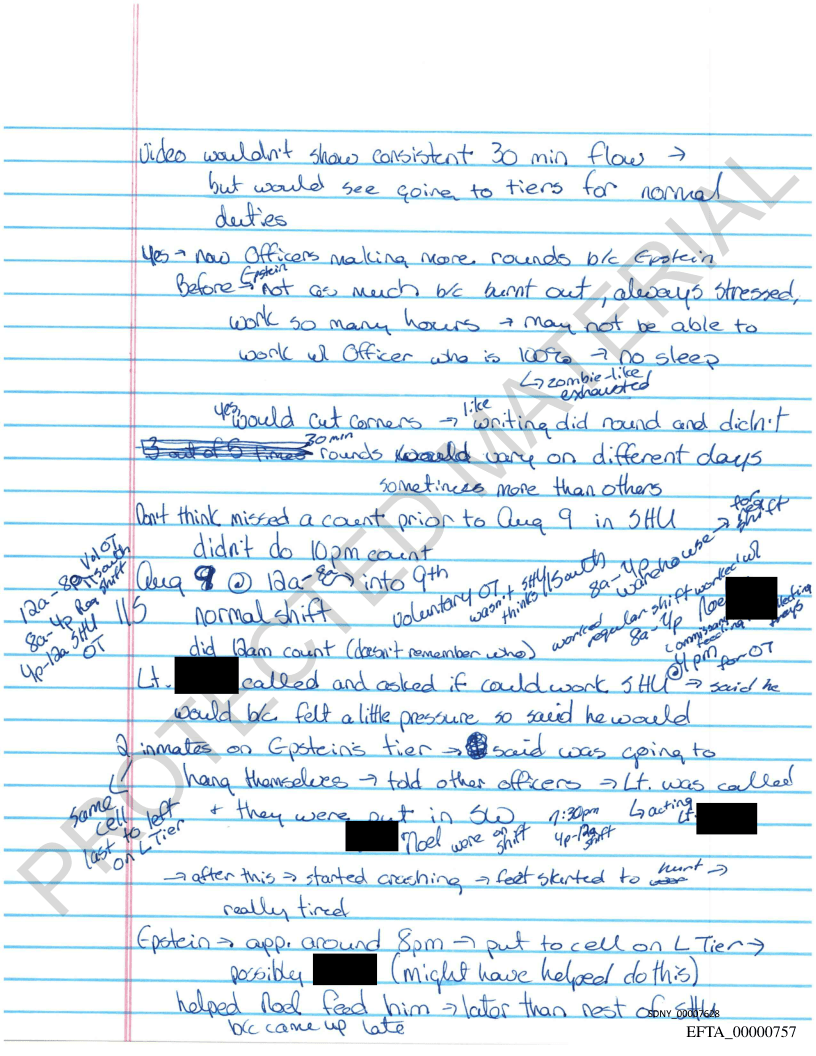 Video wouldn't show consistent 30 min flow →
but would see going to tiers for normal
duties
Yes → now Officers making more rounds b/c Epstein
Before Epstein → not as much b/c burnt out, always stressed,
work so many hours → may not be able to
work w/ Officer who is 100% → no sleep
↳ zombie-like
exhausted
yes, would cut corners → like writing did round and didn't
3 out of 5 times 30 min rounds would vary on different days
sometimes more than others
Don't think missed a count prior to Aug 9 in SHU
didn't do 10pm count
Aug 9 @ 12a-8a → into 9th
normal shift
12a-8a Vol OT
11South
8a-4p Reg shift
4p-12a SHU
OT
11S
voluntary OT, wasn't SHU
thinks 11South
8a-4p warehouse → for
shift
worked regular shift worked w/
8a-4p Noel
commissary
feeding
trays
@ 4pm for OT
did 12am count (doesn't remember who)
Lt. called and asked if could work SHU → said he
would b/c felt a little pressure so said he would
2 inmates on Epstein's tier → said was going to
hang themselves → told other officers → Lt. was called
same cell
last to left
on L Tier
+ they were put in SW
7:30pm
↳ acting
Lt.
Noel were on shift
4p-12a shift
→ after this → started crashing → feet started to hurt →
really tired
Epstein → app. around 8pm → put to cell on L Tier →
possibly (might have helped do this)
helped Noel feed him → later than rest of SHU
b/c came up late
PROTECTED MATERIAL
SDNY_00007628
EFTA_00000757